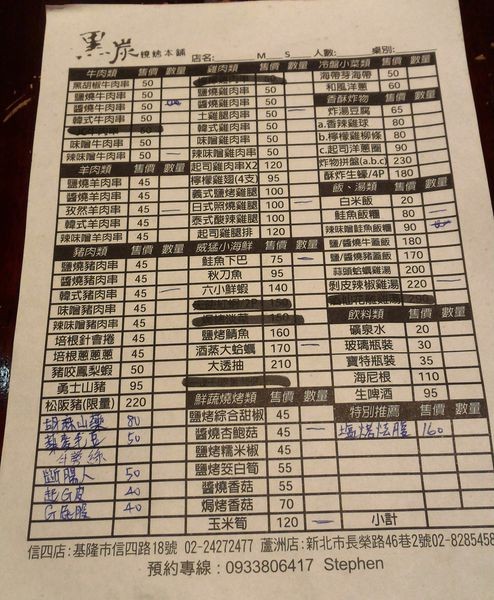 黑炭燒烤本舖
店名: M S 人數: 桌別:
牛肉類 售價 數量
黑胡椒牛肉串 50
鹽燒牛肉串 50
醬燒牛肉串 50
韓式牛肉串 50
味噌牛肉串 50
辣味噌牛肉串 50
羊肉類 售價 數量
鹽燒羊肉串 45
醬燒羊肉串 45
孜然羊肉串 45
韓式羊肉串 45
辣味噌羊肉串 45
豬肉類 售價 數量
鹽燒豬肉串 45
醬燒豬肉串 45
韓式豬肉串 45
味噌豬肉串 45
辣味噌豬肉串 45
培根針會捲 45
培根蔥蔥蔥 45
豬咬鳳梨蝦 50
勇士山豬 95
松阪豬(限量) 220
胡麻山藥 80
50
斷腸人 50
起G皮 40
G屁股 40
雞肉類 售價 數量
鹽燒雞肉串 50
醬燒雞肉串 50
土雞雞肉串 50
韓式雞肉串 50
味噌雞肉串 50
辣味噌雞肉串 50
起司雞肉串X2 120
檸檬雞翅(4支) 95
義式鹽烤雞腿 100
日式照燒雞腿 100
泰式酸辣雞腿 100
起司雞腿排 120
威猛小海鮮 售價 數量
鮭魚下巴 75
秋刀魚 95
六小鮮蝦 140
鹽烤鯖魚 160
酒蒸大蛤蠣 170
大透抽 210
鮮蔬燒烤類 售價 數量
鹽烤綜合甜椒 45
醬燒杏鮑菇 45
鹽烤糯米椒 45
鹽烤筊白筍 55
醬燒香菇 55
焗烤香菇 70
玉米筍 120
冷盤小菜類 售價 數量
海帶芽海帶 50
和風洋蔥 60
香酥炸物 售價 數量
炸湯豆腐 65
a.香辣雞球 80
b.檸檬雞柳條 80
c.起司洋蔥圈 90
炸物拼盤(a.b.c) 230
酥炸生蠔/4P 180
飯、湯類 售價 數量
白米飯 20
鮭魚飯糰 80
辣味噌鮭魚飯糰 90
鹽/醬燒牛蓋飯 180
鹽/醬燒豬蓋飯 170
蒜頭蛤蠣雞湯 200
剝皮辣椒雞湯 220
290
飲料類 售價 數量
礦泉水 20
玻璃瓶裝 30
寶特瓶裝 35
海尼根 110
生啤酒 95
特別推薦 售價 數量
160
小計
信四店:基隆市信四路18號 02-24272477 蘆洲店:新北市長榮路46巷2號02-8285458
預約專線:0933806417 Stephen